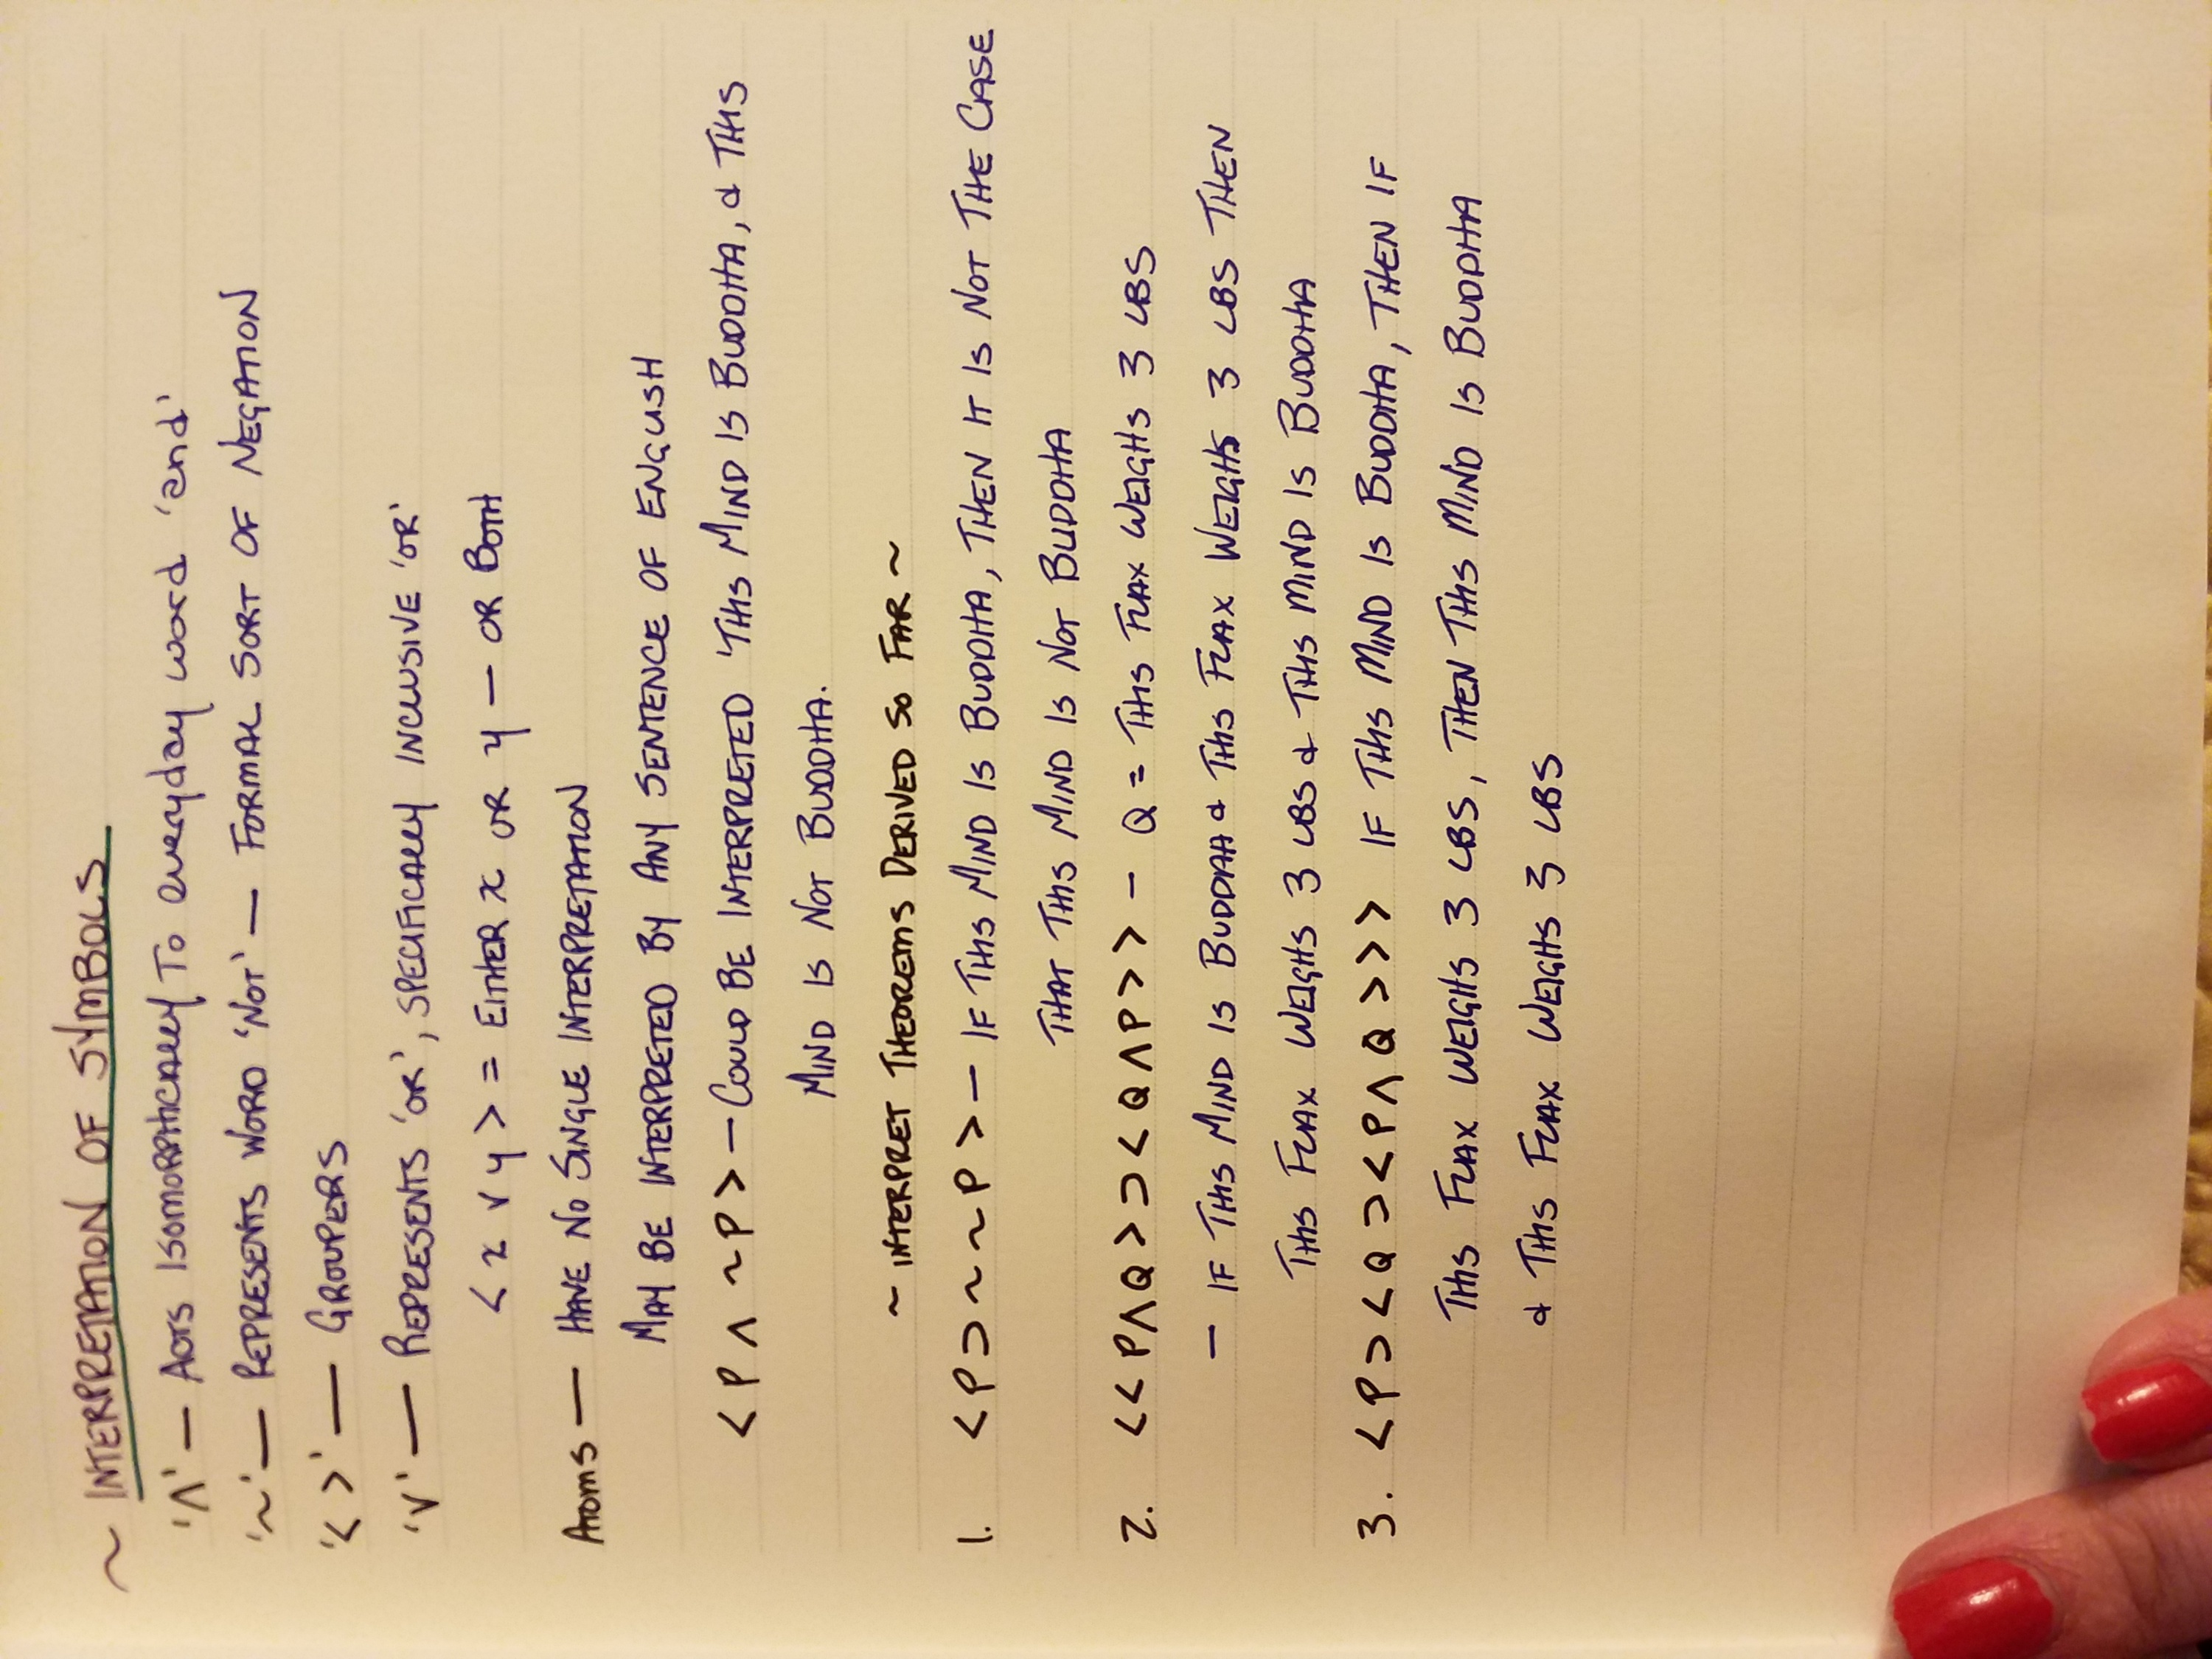 ~ INTERPRETATION OF SYMBOLS
'∧' — ACTS ISOMORPHICALLY TO everyday word 'and'
'~' — REPRESENTS WORD 'NOT' — FORMAL SORT OF NEGATION
'< >' — GROUPERS
'∨' — REPRESENTS 'OR', SPECIFICALLY INCLUSIVE 'OR'
< x ∨ y > = EITHER x OR y — OR BOTH
ATOMS — HAVE NO SINGLE INTERPRETATION
MAY BE INTERPRETED BY ANY SENTENCE OF ENGLISH
< P ∧ ~P > — COULD BE INTERPRETED 'THIS MIND IS BUDDHA, & THIS
MIND IS NOT BUDDHA.
~ INTERPRET THEOREMS DERIVED SO FAR ~
1. < P ⊃ ~ ~ P > — IF THIS MIND IS BUDDHA, THEN IT IS NOT THE CASE
THAT THIS MIND IS NOT BUDDHA
2. < < P ∧ Q > ⊃ < Q ∧ P > > — Q = THIS FLAX WEIGHS 3 LBS
— IF THIS MIND IS BUDDAH & THIS FLAX WEIGHS 3 LBS THEN
THIS FLAX WEIGHS 3 LBS & THIS MIND IS BUDDHA
3. < P ⊃ < Q ⊃ < P ∧ Q > > > IF THIS MIND IS BUDDHA, THEN IF
THIS FLAX WEIGHS 3 LBS, THEN THIS MIND IS BUDDHA
& THIS FLAX WEIGHS 3 LBS